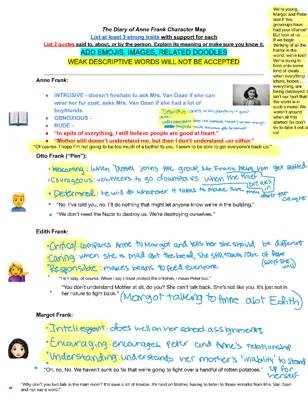 The Diary of Anne Frank Character Map
List at least 3 strong traits with support for each
List 2 quotes said to, about, or by the person. Explain its meaning or make sure you know it.
ADD EMOJIS, IMAGES, RELATED DOODLES
WEAK DESCRIPTIVE WORDS WILL NOT BE ACCEPTED
We're young,
Margot and Peter
and I! You
grownups have
had your chance!
But look at us
If we begin
thinking of all the
horror in the
world, we're lost!
We're trying to
hold onto some
kind of ideals
when everything
ideals, hopes
everything, are
being destroyed!
isn't our fault that
the world is in
such a mess! We
weren't around
when all this
started! So don't
try to take it out on
us!
Anne Frank:
INTRUSIVE - doesn't hesitate to ask Mrs. Van Daan if she can
wear her fur coat, asks Mrs. Van Daan if she had a lot of
boyfriends
OBNOXIOUS -
RUDE -
"In spite of everything, I still believe people are good at heart."
"Mother still doesn't understand me, but then I don't understand her either."
Otto Frank ("Pim"):
Welcoming: when Dussel joins the group, Mr. Frank helps him get settled
Courageous: volunteers to go downstairs when the thief
breaks in
Determined: he will do whatever it takes to make sure they don't get caught
"No. I've told you, no. I'll do nothing that might let anyone know we're in the building."
"We don't need the Nazis to destroy us. We're destroying ourselves."
Edith Frank:
Critical: compares Anne to Margot and tells her she should be different
Caring: when she is mad at the bread, she still takes care of
Responsible: makes beans to feed everyone
"You don't understand Mother at all, do you? She can't talk back. She's not like you. It's just not
in her nature to fight back."
(Margot talking to Anne abt Edith)
Margot Frank:
Intelligent: does well on her school assignments
Encouraging: encourages Peter and Anne's relationship
Understanding: understands her mother's inability to stand up for herself
"Oh, no. No. We haven't sunk so far that we're going to fight over a handful of rotten potatoes."
"Why don't you two talk in the main room? It'd save a lot of trouble. It's hard on Mother, having to listen to those remarks from Mrs. Van Daan
and not say a word."